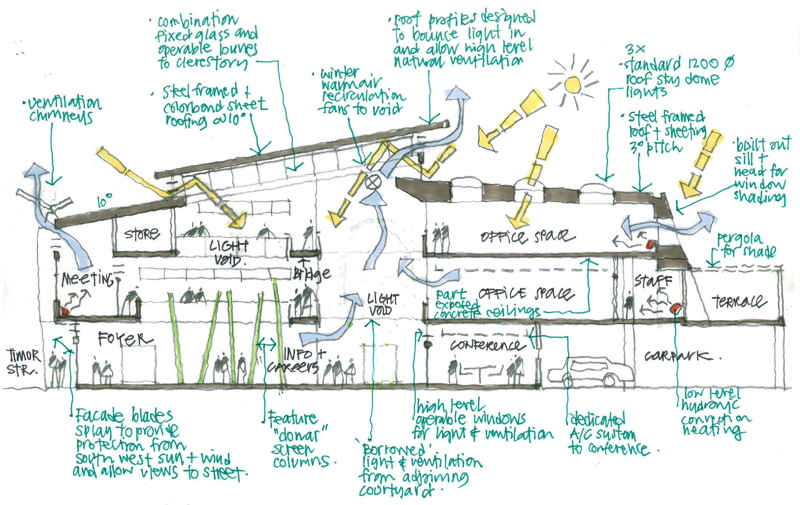 • combination
fixed glass and
operable louvres
to clerestory
• roof profiles designed
to bounce light in
and allow high level
natural ventilation
3x
• standard 1200 Ø
roof sky dome
lights
• ventilation
chimneys
• Steel framed +
colorbond sheet
roofing @ 10°
• winter
warm air
recirculation
fans to void
• steel framed
roof + sheeting
3° pitch
• built out
sill +
head for
window
shading
10°
STORE
LIGHT
VOID.
OFFICE SPACE
pergola
for shade
MEETING
Bridge
LIGHT
VOID
part
exposed
concrete ceilings
OFFICE SPACE
STAFF
TERRACE
TIMOR
STR.
FOYER
INFO +
CAREERS
CONFERENCE
CARPARK.
Facade blades
splay to provide
protection from
south west sun + wind
and allow views to street.
Feature
"donar"
screen
columns.
'Borrowed'
light & ventilation
from adjoining
courtyard.
high level
operable windows
for light & ventilation
dedicated
A/C system
to conference.
low level
hydronic
convection
heating